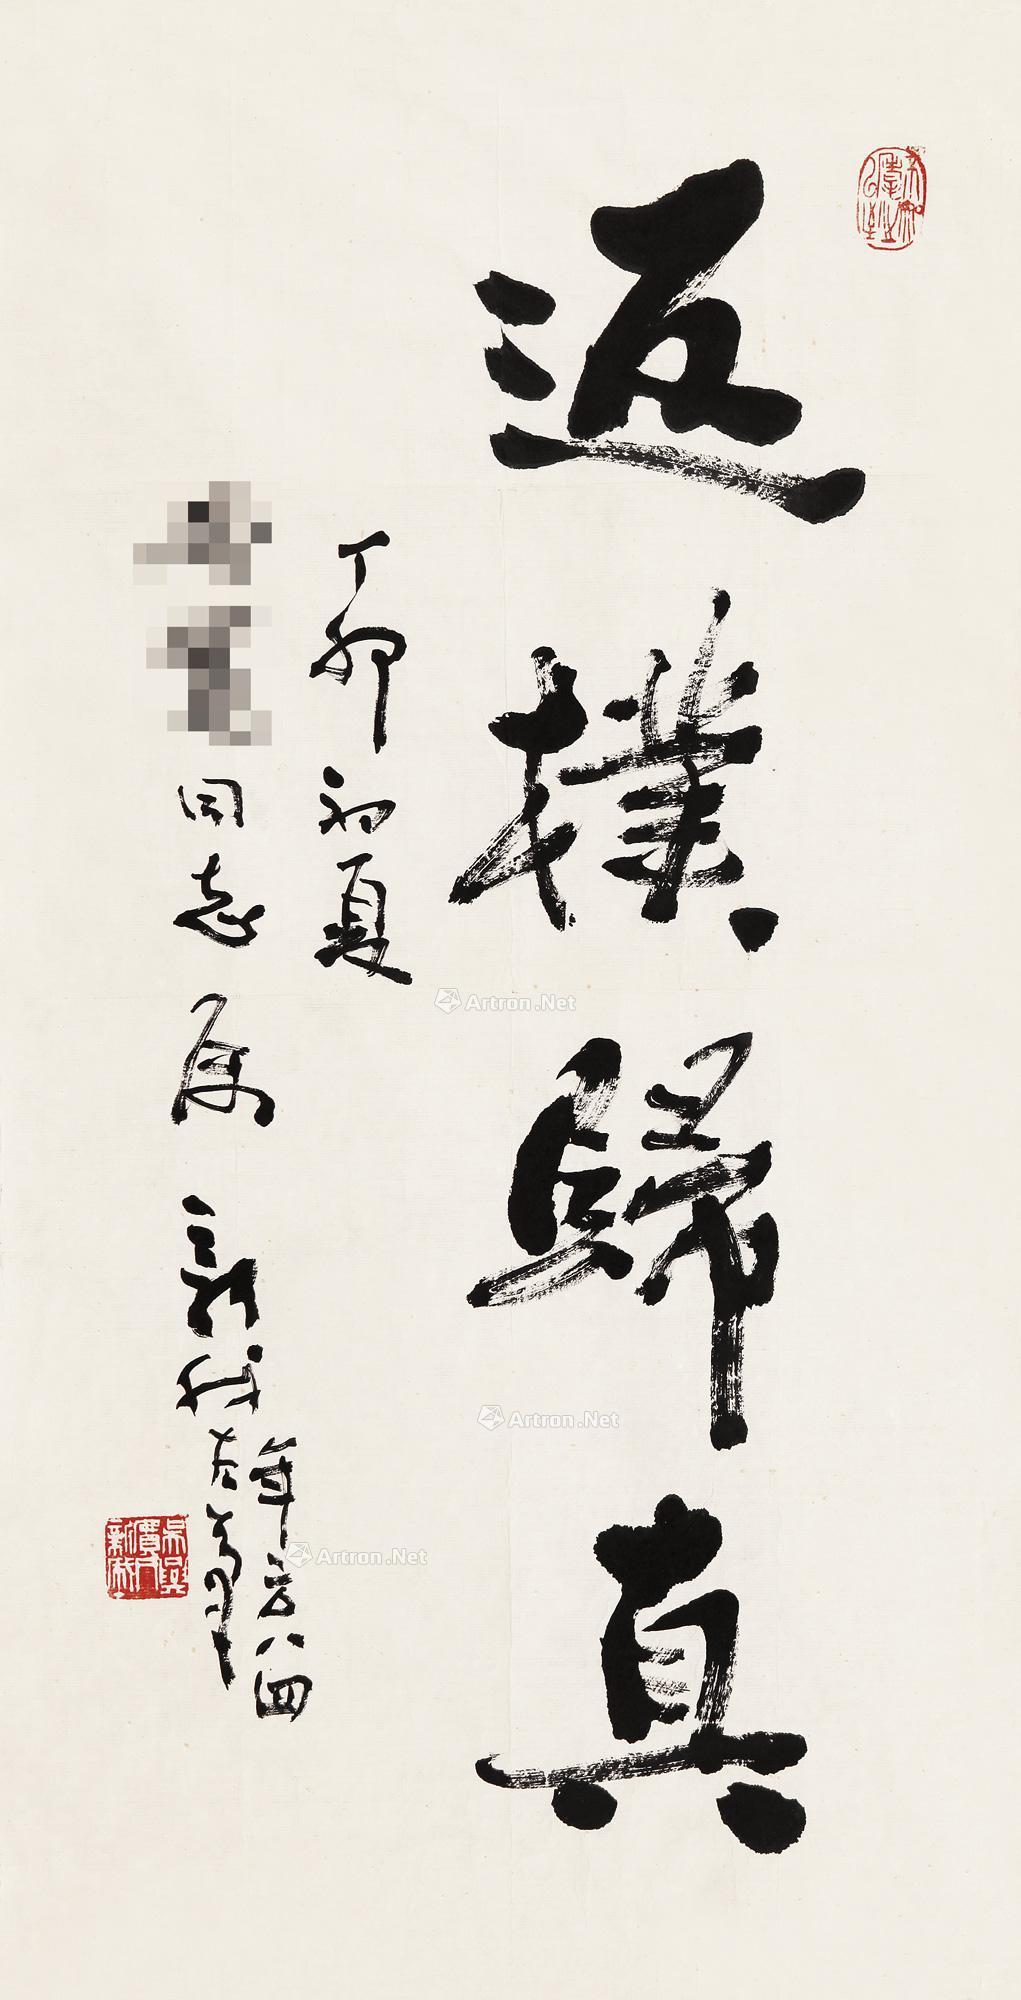 返樸歸真
丁卯初夏
同志属 新我左筆
年方八四
Artron.Net
Artron.Net
Artron.Net